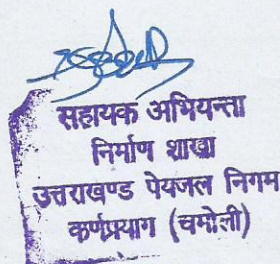 सहायक अभियन्ता
निर्माण शाखा
उत्तराखण्ड पेयजल निगम
कर्णप्रयाग (चमोली)